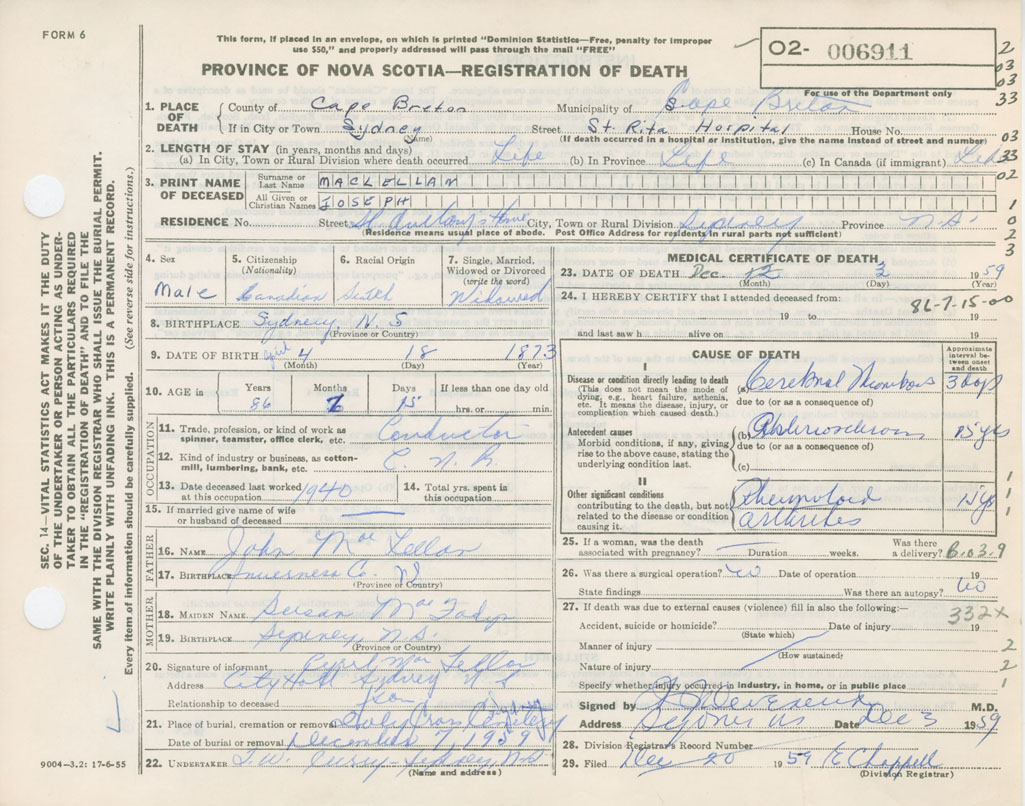 FORM 6
This form, if placed in an envelope, on which is printed "Dominion Statistics—Free, penalty for improper
use $50," and properly addressed will pass through the mail "FREE"
O2- 006911
2
03
03
33
PROVINCE OF NOVA SCOTIA—REGISTRATION OF DEATH
For use of the Department only
1. PLACE OF DEATH County of Cape Breton Municipality of Cape Breton
If in City or Town Sydney Street St. Rita Hospital House No.
(Name) (If death occurred in a hospital or institution, give the name instead of street and number)
03
2. LENGTH OF STAY (in years, months and days)
(a) In City, Town or Rural Division where death occurred Life (b) In Province Life (c) In Canada (if immigrant) Life
33
02
3. PRINT NAME OF DECEASED Surname or Last Name MACLELLAN
All Given or Christian Names JOSEPH
1
RESIDENCE No. Street St. Anthony's Home City, Town or Rural Division Sydney Province N.S.
(Residence means usual place of abode. Post Office Address for residents in rural parts not sufficient)
0
2
3
4. Sex Male
5. Citizenship (Nationality) Canadian
6. Racial Origin
7. Single, Married, Widowed or Divorced (write the word) Widowed
8. BIRTHPLACE Sydney, N.S
(Province or Country)
9. DATE OF BIRTH April 4 18 1873
(Month) (Day) (Year)
10. AGE in Years 86 Months 7 Days 15 If less than one day old
hrs. or min.
OCCUPATION
11. Trade, profession, or kind of work as spinner, teamster, office clerk, etc. Conductor
12. Kind of industry or business, as cotton-mill, lumbering, bank, etc. C.N.R.
13. Date deceased last worked at this occupation 1940
14. Total yrs. spent in this occupation
15. If married give name of wife or husband of deceased
FATHER
16. NAME John MacLellan
17. BIRTHPLACE Inverness Co. NS
(Province or Country)
MOTHER
18. MAIDEN NAME Susan
19. BIRTHPLACE Sydney, N.S.
(Province or Country)
20. Signature of informant MacLellan
Address City Hall Sydney N.S
Relationship to deceased Son
21. Place of burial, cremation or removal Holy Cross Cemetery Sydney
Date of burial or removal December 7, 1959
22. UNDERTAKER T.W. Curry - Sydney, N.S
(Name and address)
9004—3.2: 17-6-55
MEDICAL CERTIFICATE OF DEATH
23. DATE OF DEATH Dec. 12 3 1959
(Month) (Day) (Year)
24. I HEREBY CERTIFY that I attended deceased from:
86-7-15-00
19 to 19
and last saw h alive on 19
CAUSE OF DEATH
Approximate interval between onset and death
I
Disease or condition directly leading to death
(This does not mean the mode of dying, e.g., heart failure, asthenia, etc. It means the disease, injury, or complication which caused death.)
(a) Cerebral Thrombosis 3 days
due to (or as a consequence of)
Antecedent causes
Morbid conditions, if any, giving rise to the above cause, stating the underlying condition last.
(b) Arteriosclerosis 15 yrs
due to (or as a consequence of)
(c)
II
Other significant conditions
contributing to the death, but not related to the disease or condition causing it.
Rheumatoid arthritis 15 yrs
1
1
1
25. If a woman, was the death associated with pregnancy? Duration weeks. Was there a delivery? B.03.9
26. Was there a surgical operation? No Date of operation 19
State findings Was there an autopsy? No
27. If death was due to external causes (violence) fill in also the following:—
332X
Accident, suicide or homicide? Date of injury 19
(State which)
Manner of injury 2
(How sustained)
Nature of injury 2
Specify whether injury occurred in industry, in home, or in public place 1
Signed by M.D.
Address Sydney NS Date Dec 3 1959
28. Division Registrar's Record Number
29. Filed Dec 20 1959 E Chappell
(Division Registrar)
SEC. 14—VITAL STATISTICS ACT MAKES IT THE DUTY
OF THE UNDERTAKER OR PERSON ACTING AS UNDER-
TAKER TO OBTAIN ALL THE PARTICULARS REQUIRED
IN THE "REGISTRATION OF DEATH" AND TO FILE THE
SAME WITH THE DIVISION REGISTRAR WHO SHALL ISSUE THE BURIAL PERMIT.
WRITE PLAINLY WITH UNFADING INK. THIS IS A PERMANENT RECORD.
Every item of information should be carefully supplied. (See reverse side for instructions.)